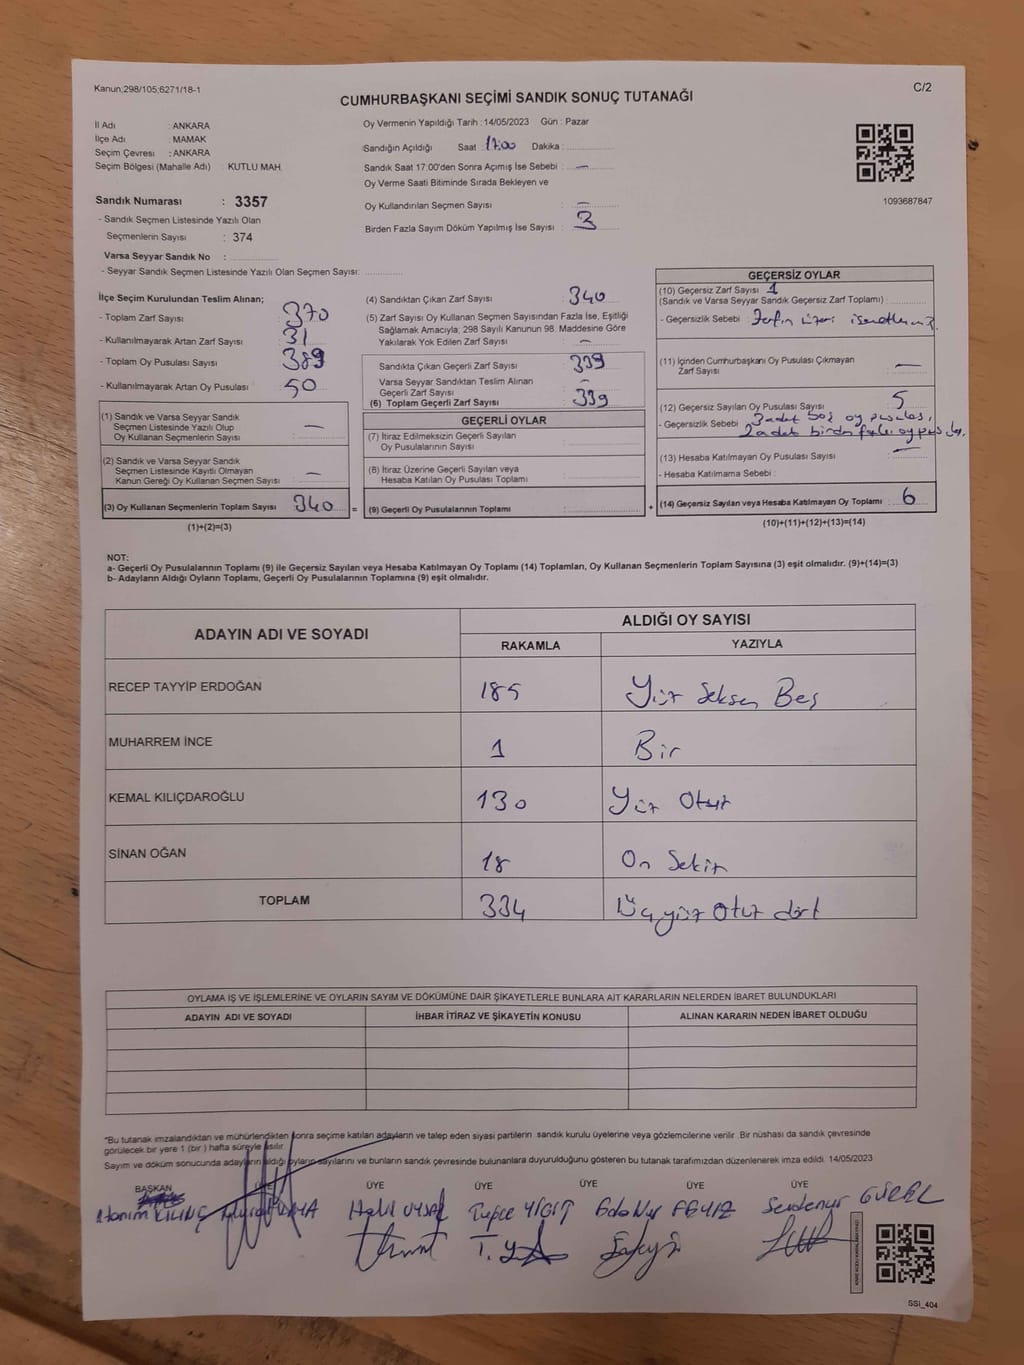 Kanun,298/105;6271/18-1
C/2
CUMHURBAŞKANI SEÇİMİ SANDIK SONUÇ TUTANAĞI
İl Adı : ANKARA
İlçe Adı : MAMAK
Seçim Çevresi : ANKARA
Seçim Bölgesi (Mahalle Adı) : KUTLU MAH.
Oy Vermenin Yapıldığı Tarih : 14/05/2023 Gün : Pazar
Sandığın Açıldığı Saat : 17:00 Dakika :
Sandık Saat 17.00'den Sonra Açımış İse Sebebi : —
Oy Verme Saati Bitiminde Sırada Bekleyen ve
Oy Kullandırılan Seçmen Sayısı : —
Birden Fazla Sayım Döküm Yapılmış İse Sayısı : 3
1093687847
Sandık Numarası : 3357
- Sandık Seçmen Listesinde Yazılı Olan
Seçmenlerin Sayısı : 374
Varsa Seyyar Sandık No :
- Seyyar Sandık Seçmen Listesinde Yazılı Olan Seçmen Sayısı:
İlçe Seçim Kurulundan Teslim Alınan;
- Toplam Zarf Sayısı : 370
- Kullanılmayarak Artan Zarf Sayısı : 31
- Toplam Oy Pusulası Sayısı : 389
- Kullanılmayarak Artan Oy Pusulası : 50
(1) Sandık ve Varsa Seyyar Sandık
Seçmen Listesinde Yazılı Olup
Oy Kullanan Seçmenlerin Sayısı : —
(2) Sandık ve Varsa Seyyar Sandık
Seçmen Listesinde Kayıtlı Olmayan
Kanun Gereği Oy Kullanan Seçmen Sayısı : —
(3) Oy Kullanan Seçmenlerin Toplam Sayısı : 340 =
(1)+(2)=(3)
(4) Sandıktan Çıkan Zarf Sayısı : 340
(5) Zarf Sayısı Oy Kullanan Seçmen Sayısından Fazla İse, Eşitliği
Sağlamak Amacıyla; 298 Sayılı Kanunun 98. Maddesine Göre
Yakılarak Yok Edilen Zarf Sayısı : —
Sandıkta Çıkan Geçerli Zarf Sayısı : 339
Varsa Seyyar Sandıktan Teslim Alınan
Geçerli Zarf Sayısı : —
(6) Toplam Geçerli Zarf Sayısı : 339
GEÇERLİ OYLAR
(7) İtiraz Edilmeksizin Geçerli Sayılan
Oy Pusulalarının Sayısı :
(8) İtiraz Üzerine Geçerli Sayılan veya
Hesaba Katılan Oy Pusulası Toplamı :
(9) Geçerli Oy Pusulalarının Toplamı : +
GEÇERSİZ OYLAR
(10) Geçersiz Zarf Sayısı 1
(Sandık ve Varsa Seyyar Sandık Geçersiz Zarf Toplamı) :
- Geçersizlik Sebebi : Zarfın Üzeri
(11) İçinden Cumhurbaşkanı Oy Pusulası Çıkmayan
Zarf Sayısı : —
(12) Geçersiz Sayılan Oy Pusulası Sayısı : 5
- Geçersizlik Sebebi : 3 adet boş oy pusulası,
2 adet birden fazla oy pusula.
(13) Hesaba Katılmayan Oy Pusulası Sayısı : —
- Hesaba Katılmama Sebebi :
(14) Geçersiz Sayılan veya Hesaba Katılmayan Oy Toplamı : 6
(10)+(11)+(12)+(13)=(14)
NOT:
a- Geçerli Oy Pusulalarının Toplamı (9) ile Geçersiz Sayılan veya Hesaba Katılmayan Oy Toplamı (14) Toplamları, Oy Kullanan Seçmenlerin Toplam Sayısına (3) eşit olmalıdır. (9)+(14)=(3)
b- Adayların Aldığı Oyların Toplamı, Geçerli Oy Pusulalarının Toplamına (9) eşit olmalıdır.
ADAYIN ADI VE SOYADI
ALDIĞI OY SAYISI
RAKAMLA YAZIYLA
RECEP TAYYİP ERDOĞAN 185 Yüz Seksen Beş
MUHARREM İNCE 1 Bir
KEMAL KILIÇDAROĞLU 130 Yüz Otuz
SİNAN OĞAN 18 On Sekiz
TOPLAM 334 Üçyüz Otuz dört
OYLAMA İŞ VE İŞLEMLERİNE VE OYLARIN SAYIM VE DÖKÜMÜNE DAİR ŞİKAYETLERLE BUNLARA AİT KARARLARIN NELERDEN İBARET BULUNDUKLARI
ADAYIN ADI VE SOYADI İHBAR İTİRAZ VE ŞİKAYETİN KONUSU ALINAN KARARIN NEDEN İBARET OLDUĞU
*Bu tutanak imzalandıktan ve mühürlendikten sonra seçime katılan adayların ve talep eden siyasi partilerin sandık kurulu üyelerine veya gözlemcilerine verilir. Bir nüshası da sandık çevresinde
görülecek bir yere 1 (bir) hafta süreyle asılır.
Sayım ve döküm sonucunda adayların aldığı oyların sayılarını ve bunların sandık çevresinde bulunanlara duyurulduğunu gösteren bu tutanak tarafımızdan düzenlenerek imza edildi. 14/05/2023
BAŞKAN ÜYE ÜYE ÜYE ÜYE ÜYE ÜYE
Hanım KILINÇ Halil UYSAL Tuğçe YİĞİT Edanur FEYİZ Serdenur GÜREL
T. Y
SSI_404